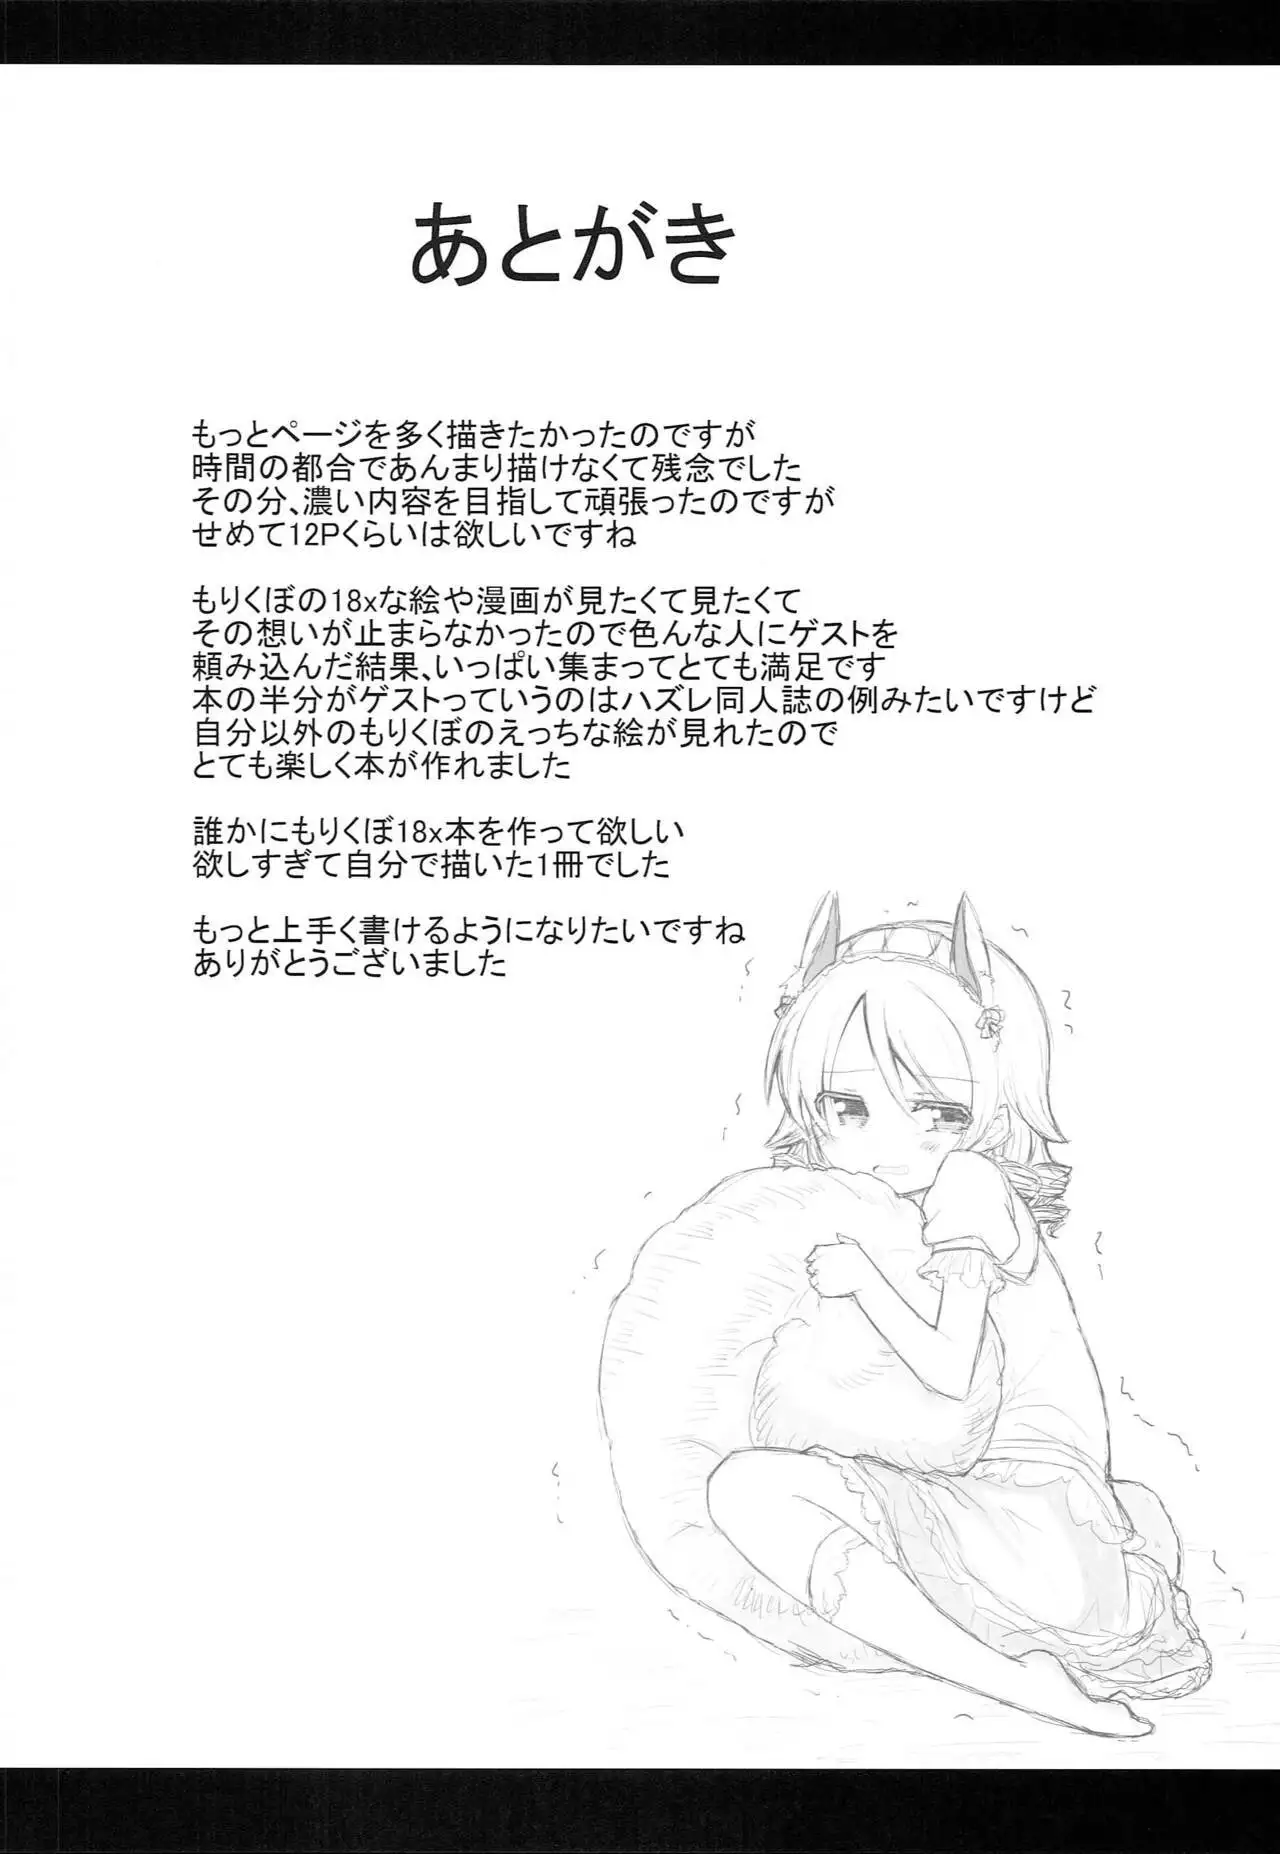 あとがき
もっとページを多く描きたかったのですが
時間の都合であんまり描けなくて残念でした
その分、濃い内容を目指して頑張ったのですが
せめて12Pくらいは欲しいですね
もりくぼの18xな絵や漫画が見たくて見たくて
その想いが止まらなかったので色んな人にゲストを
頼み込んだ結果、いっぱい集まってとても満足です
本の半分がゲストっていうのはハズレ同人誌の例みたいですけど
自分以外のもりくぼのえっちな絵が見れたので
とても楽しく本が作れました
誰かにもりくぼ18x本を作って欲しい
欲しすぎて自分で描いた1冊でした
もっと上手く書けるようになりたいですね
ありがとうございました